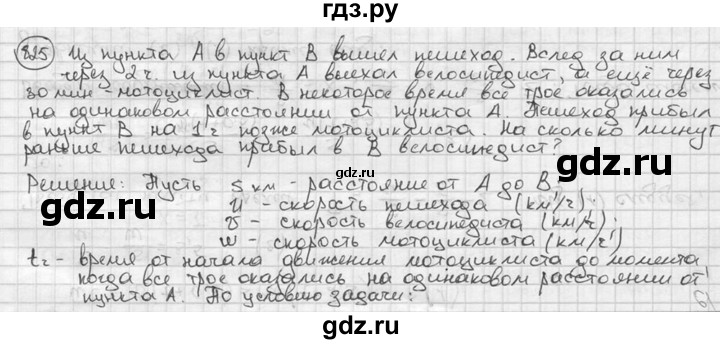 гдз.ру
825 Из пункта А в пункт В вышел пешеход. Вслед за ним
через 2 ч. из пункта А выехал велосипедист, а ещё через
30 мин - мотоциклист. В некоторое время все трое оказались
на одинаковом расстоянии от пункта А. Пешеход прибыл
в пункт В на 1 ч позже мотоциклиста. На сколько минут
раньше пешехода прибыл в В велосипедист?
gdz.ru
Решение: Пусть S км - расстояние от А до В,
u - скорость пешехода (км/ч);
v - скорость велосипедиста (км/ч);
w - скорость мотоциклиста (км/ч)
gdz.ru
gdz.ru
t ч - время от начала движения мотоциклиста до момента
когда все трое оказались на одинаковом расстоянии от
пункта А. По условию задачи:
gdz.ru
gdz.ru